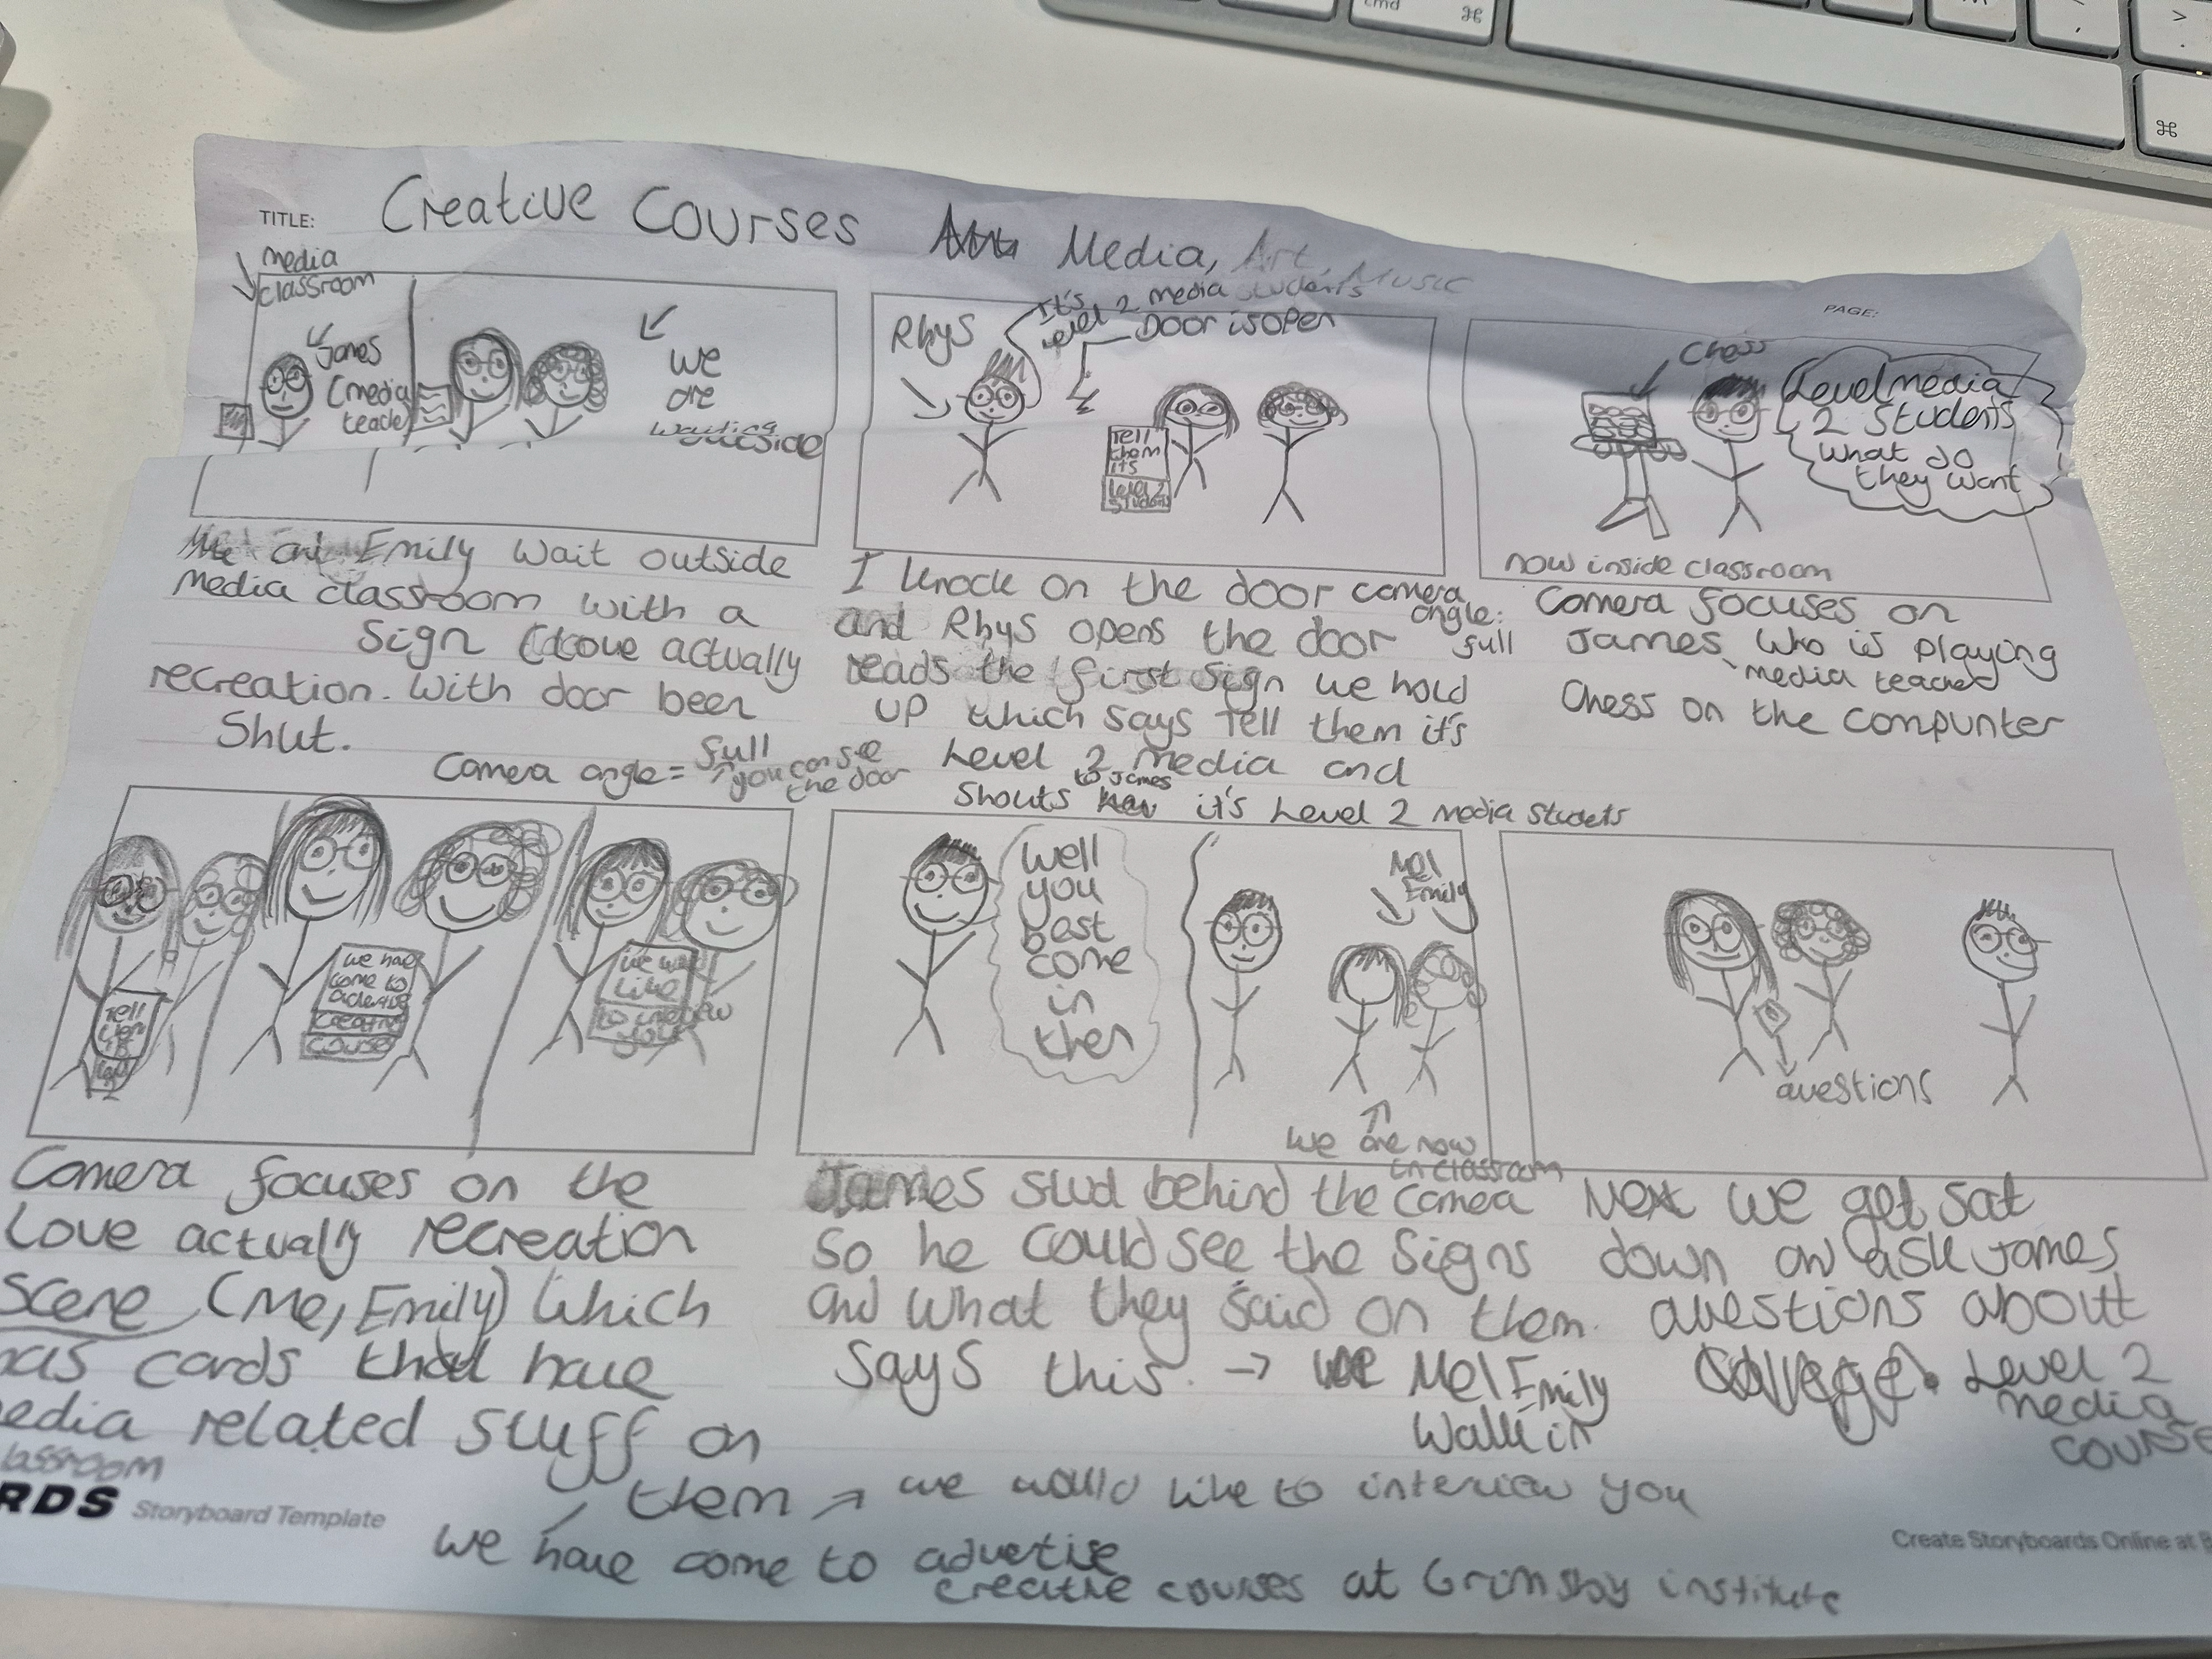 cmd ⌘
⌘
TITLE: Creative Courses Media, Art, Music
PAGE:
media
classroom
James
(media
teacher
we
are
waiting
outside
Rhys
It's
level 2 media students
Door is open
Tell
them
its
Level 2
Students
Chess
Level media
2 Students
what do
they want
now inside classroom
Me and Emily wait outside
media classroom with a
Sign (Love actually
recreation. With door been
Shut.
Camera angle = full
you can see
the door
I knock on the door camera
angle:
full
and Rhys opens the door
reads the first sign we hold
up which says Tell them it's
Level 2 media and
to James
Shouts it's Level 2 media studets
Camera focuses on
James who is playing
media teacher
Chess on the compunter
Tell
we have
come to
creative
course
we
like
to
you
well
you
best
come
in
then
Me/
Emily
we are now
in classroom
questions
Camera focuses on the
Love actually recreation
Scene (Me, Emily) Which
has cards that have
media related stuff on
them → we would like to interview you
we have come to advertise
creative courses at Grimsby institute
James stud behind the camea
So he could see the Signs
and what they said on them.
Says this. → Me/Emily
Walk in
Next we get sat
down an ask James
questions about
College. Level 2
media
course
classroom
RDS Storyboard Template
Create Storyboards Online at